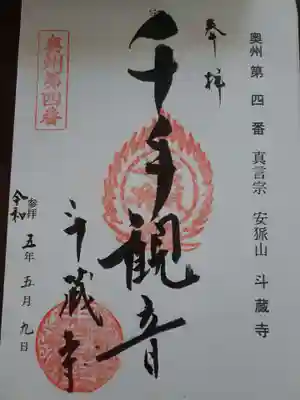 奥州 第四番 真言宗 安狐山 斗蔵寺
奉拝
千手観音
斗蔵寺
奥州第四番
参拝
令和 五年 五月 九日